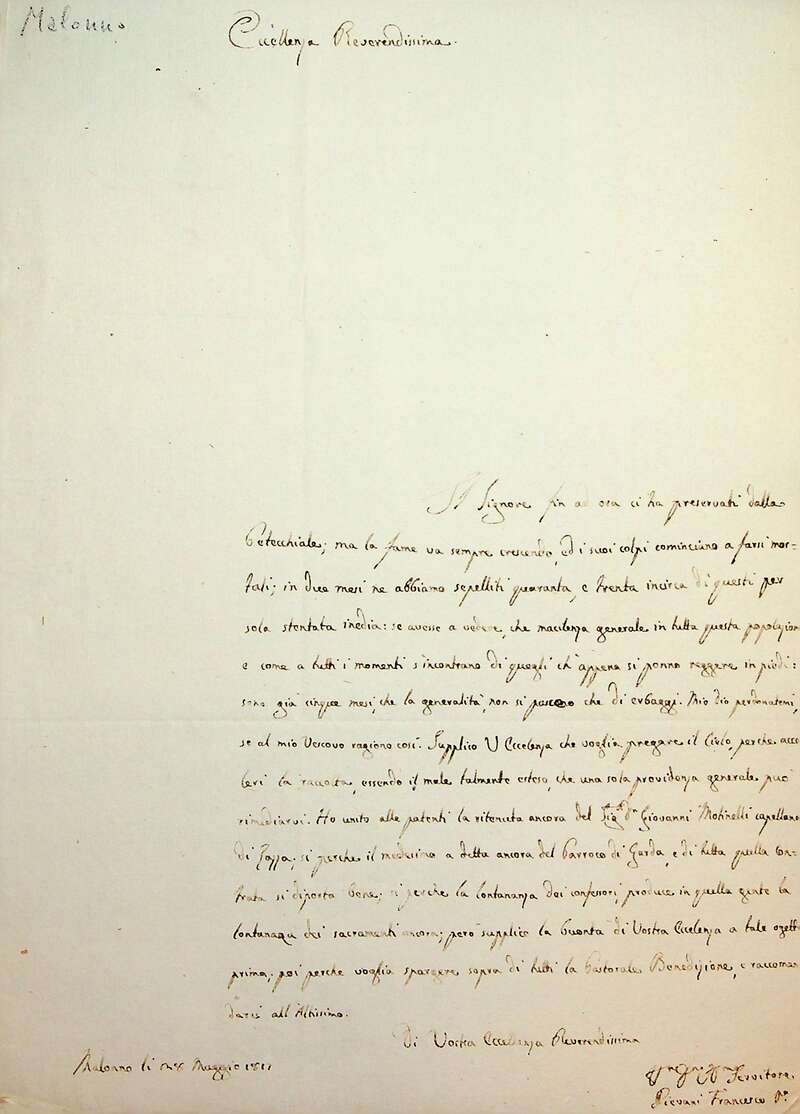 Malonno
Eccellenza Reverendissima.
Il Signore fin ad ora ci ha preservati dalla
Petecchiale; ma la fame va sempre crescendo, ed i suoi colpi cominciano a farsi mor-
tali; in due mesi ne abbiamo sepelliti quaranta, e trenta incirca di questi per
sola stentata inedia: se avesse a vedere, che macilenza generale in tutta questa popolazion
e come a tutti i momenti s'incontrano di quegli ch'appena si ponno reggere in piedi:
sono già cinque mesi, che la generalità non si pascono che di erbaggi. Mio Dio perdonatemi,
se al mio Vescovo ragiono così. Supplico V Eccelenza che voglia pregare il Cielo, perche acce
leri la raccolta, essendo il male talmente esteso, che una sola providenza generale può
rimediarvi. Ho unito alle patenti la ritenuta ancora del Sigr Dn Giovanni Motinelli capellano
di Zazza; si perche il medesimo a detta ancora del Parroco di Garda, e di tutta quella Con-
trata si diporta bene; si perche la lontananza dei confesori, produce in quella gente la
lontanaza dei sacramenti ancora; però supplico la buonta di Vostra Eccelenza a tale ogett
prima; poi perche voglia spargere sopra di tutti la Pastorale Benedizione, e raccoman
darci all'Altissimo.
Di Vostra Eccelenza Reverendissima
Malonno li Maggio 1817
Servitore
Piovani Francesco Pr.